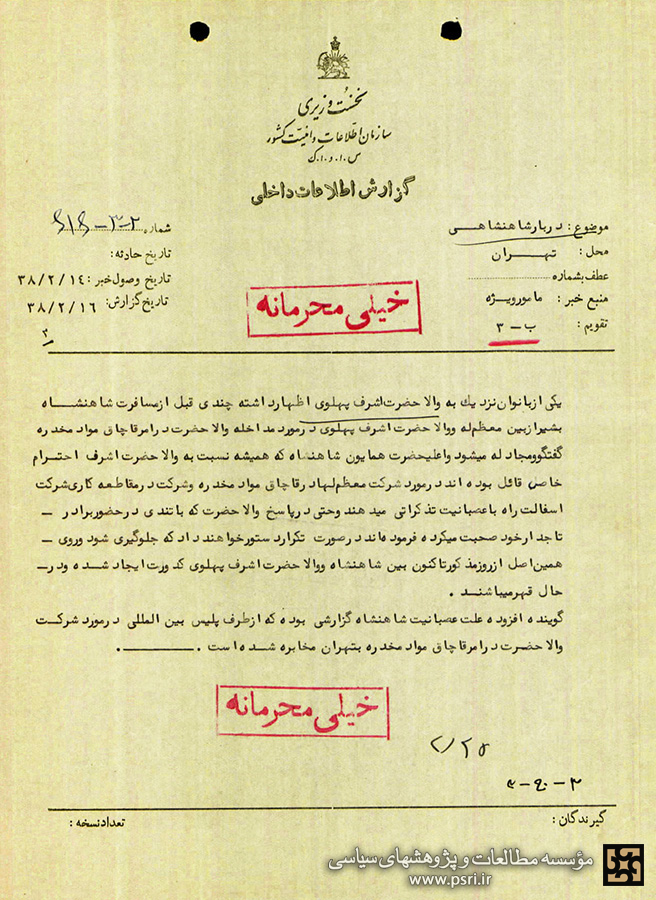 نخست وزیری
سازمان اطلاعات و امنیت کشور
س.ا.و.ا.ک
گزارش اطلاعات داخلی
موضوع: دربار شاهنشاهی
محل: تهران
عطف بشماره
منبع خبر: مامور ویژه
تقویم: ب - ۳
شماره
تاریخ حادثه:
تاریخ وصول خبر: ۳۸/۲/۱۴
تاریخ گزارش: ۳۸/۲/۱۶
خیلی محرمانه
یکی از بانوان نزدیك به والا حضرت اشرف پهلوی اظهار داشته چندی قبل از مسافرت شاهنشاه
بشیراز بین معظم‌له و والا حضرت اشرف پهلوی در مورد مداخله والا حضرت در امر قاچاق مواد مخدره
گفتگو و مجادله میشود و اعلیحضرت همایون شاهنشاه که همیشه نسبت به والا حضرت اشرف احترام
خاصی قائل بوده اند در مورد شرکت معظم‌لها در قاچاق مواد مخدره و شرکت در مقاطعه کاری شرکت
اسفالت راه با عصبانیت تذکراتی میدهند و حتی در پاسخ والا حضرت که با تندی در حضور برادر -
تاجدار خود صحبت میکرده فرموده‌اند در صورت تکرار دستور خواهند داد که جلوگیری شود و روی -
همین اصل از روز مذکور تاکنون بین شاهنشاه و والا حضرت اشرف پهلوی کدورت ایجاد شده و در -
حال قهر میباشند .
گوینده افزوده علت عصبانیت شاهنشاه گزارشی بوده که از طرف پلیس بین المللی در مورد شرکت
والا حضرت در امر قاچاق مواد مخدره بتهران مخابره شده است .ـــــــــ.
خیلی محرمانه
گیرندگان:
تعداد نسخه:
مؤسسه مطالعات و پژوهشهای سیاسی
www.psri.ir